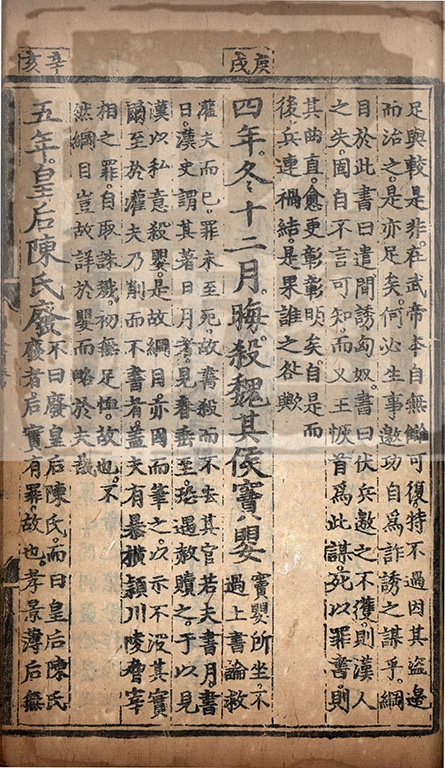 庚戌
足與較是非在武帝本自無讎可復特不過因其盜邊
而治之是亦足矣何必生事邀功自爲詐誘之謀乎綱
目於此書曰遣間誘匈奴書曰伏兵邀之不獲則漢人
之失固自不言可知而又王恢首爲此謀死以罪書則
其曲直愈更彰彰明矣自是而
後兵連禍結是果誰之咎歟
四年冬十二月晦殺魏其侯竇嬰
竇嬰所坐不
過上書論救
灌夫而已罪未至死故書殺而不去其官若夫書月書
日漢史謂其著日月者見春垂至恐遇赦贖之于以見
漢以私意殺嬰是故綱目亦因而筆之以示不沒其實
爾至於灌夫乃削而不書者蓋夫有暴橫潁川陵宰
相之罪自取誅戮初無足恤故也不
然綱目豈故詳於嬰而略於夫哉
辛亥
五年皇后陳氏廢
不曰廢皇后陳氏而曰皇后陳氏
廢者后實有罪故也孝景薄后無